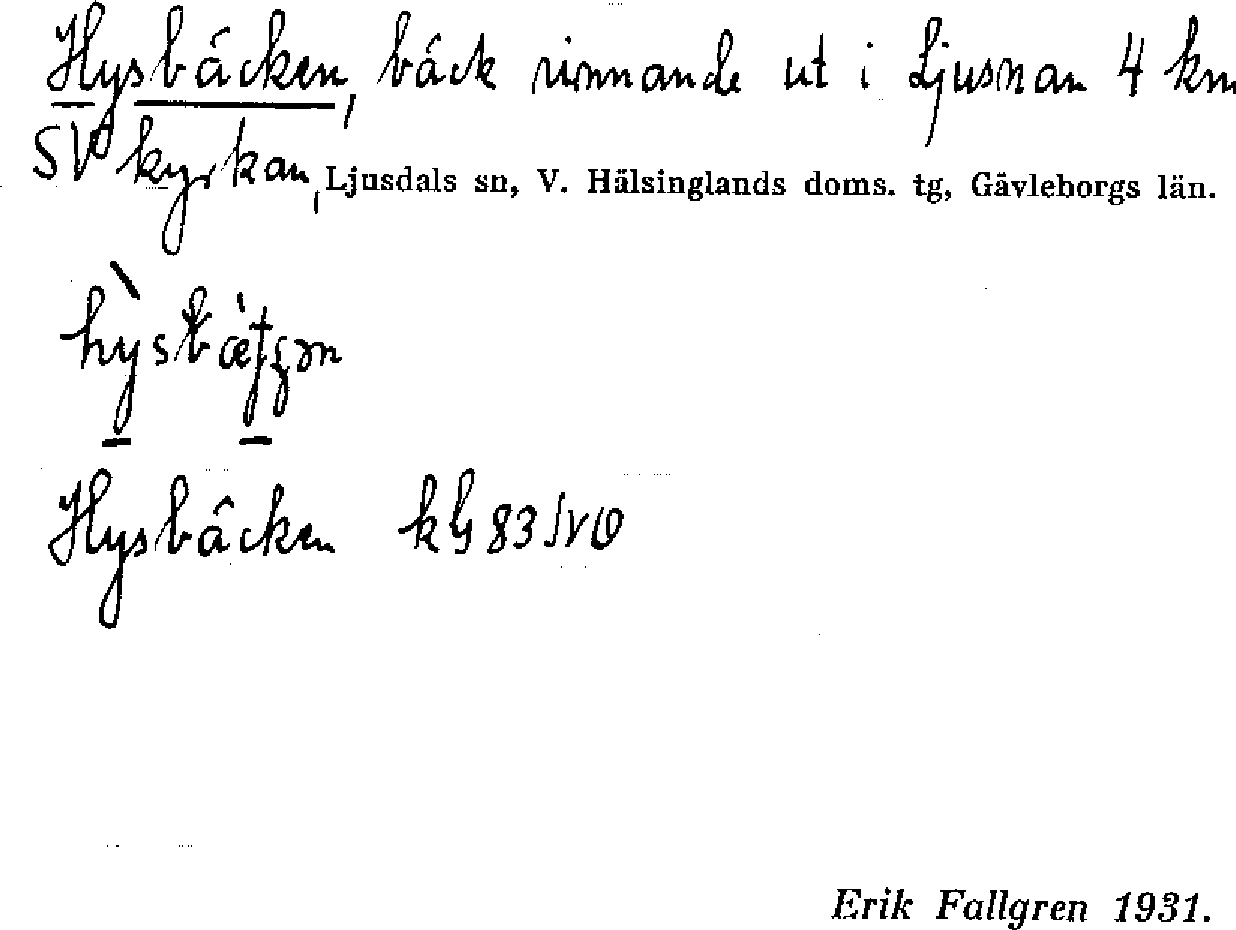 Hysbäcken, bäck rinnande ut i Ljusnan 4 km
SV kyrkan, Ljusdals sn, V. Hälsinglands doms. tg, Gävleborgs län.
Hysbäcken kG 83
Erik Fallgren 1931.